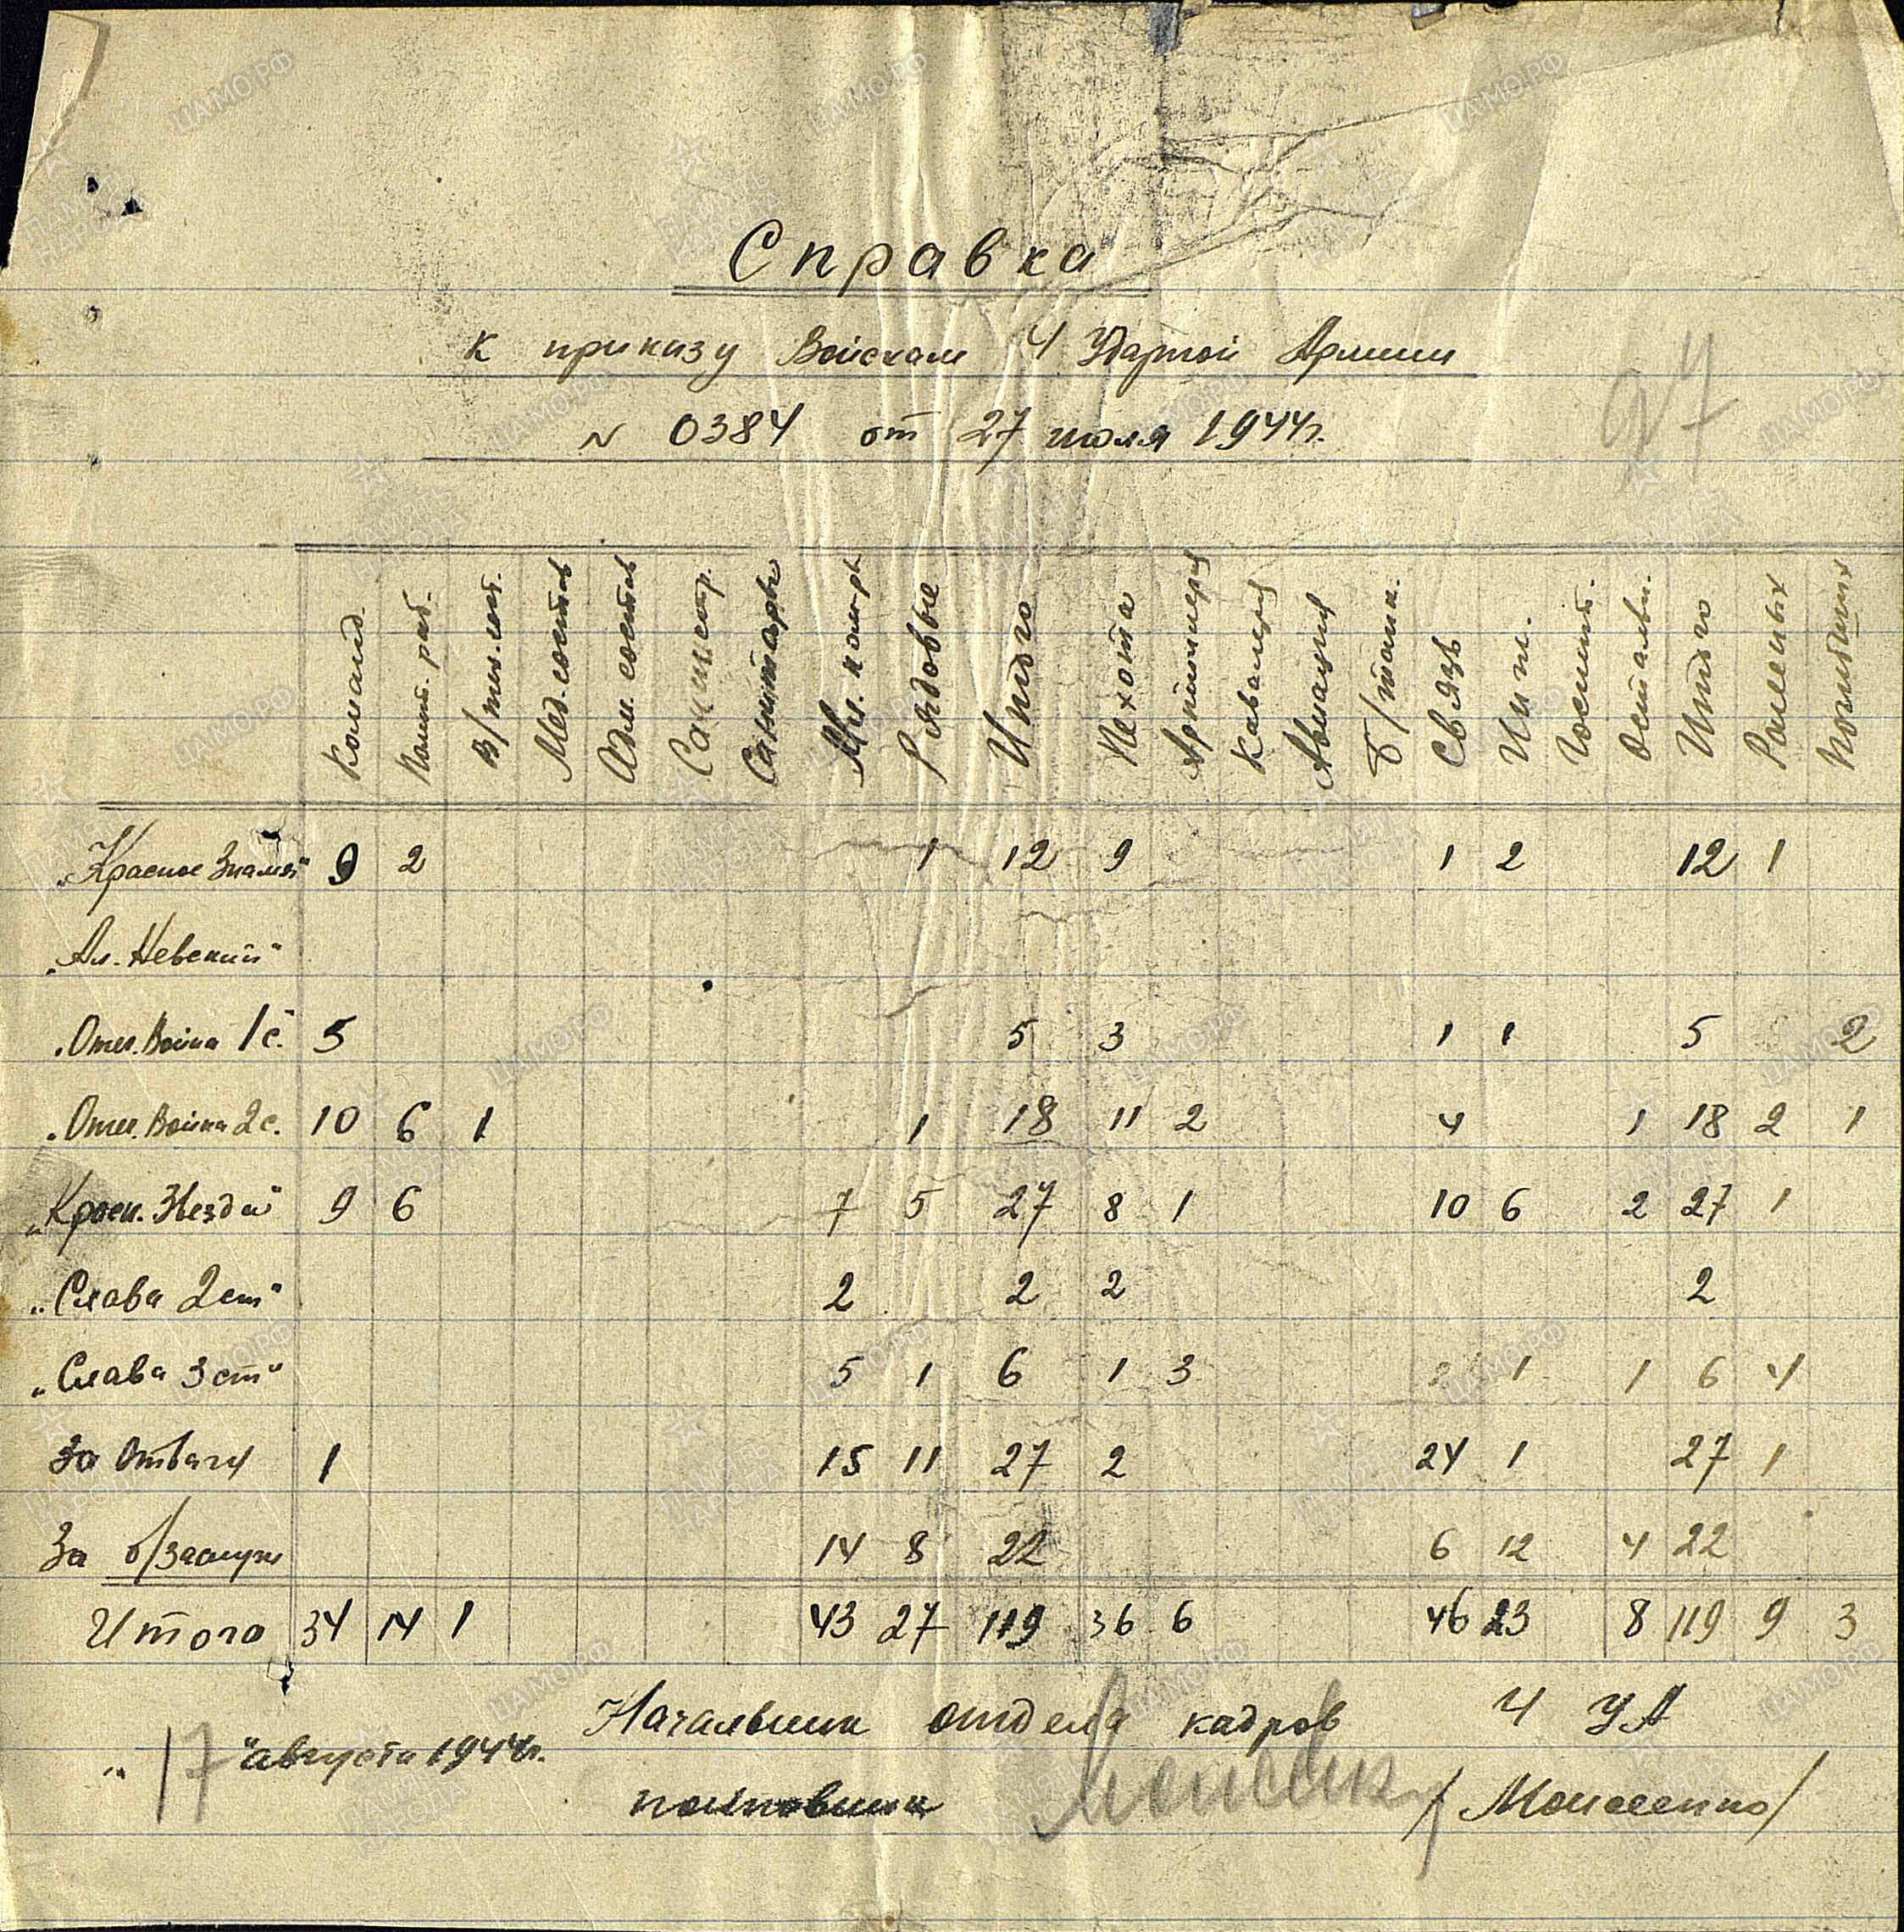 Справка
к приказу Войскам 4 Ударной Армии
27
№ 0384 от 27 июля 1944г.
Команд. Полит. раб. В/тех. сост. Мед. состав Адм. состав Санинстр. Санитары Мл. ком-ры Рядовые Итого Пехота Артиллерия Кавалерия Авиация б/танк. Связь Инж. Госпит. Остальн. Итого Раненых Погибших
„Красное Знамя" 9 2 1 12 9 1 2 12 1
„Ал. Невский"
„Отеч. Война 1 с. 5 5 3 1 1 5 2
„Отеч. Война 2 с. 10 6 1 1 18 11 2 4 1 18 2 1
„Красн. Звезда" 9 6 7 5 27 8 1 10 6 2 27 1
„Слава 2 ст" 2 2 2 2
„Слава 3 ст" 5 1 6 1 3 1 1 6 4
За Отвагу 1 15 11 27 2 24 1 27 1
За б/заслуги 14 8 22 6 12 4 22
Итого 34 14 1 43 27 119 36 6 46 23 8 119 9 3
Начальник отдела кадров 4 УА
„17" августа 1944г.
полковник /Моисеенко/